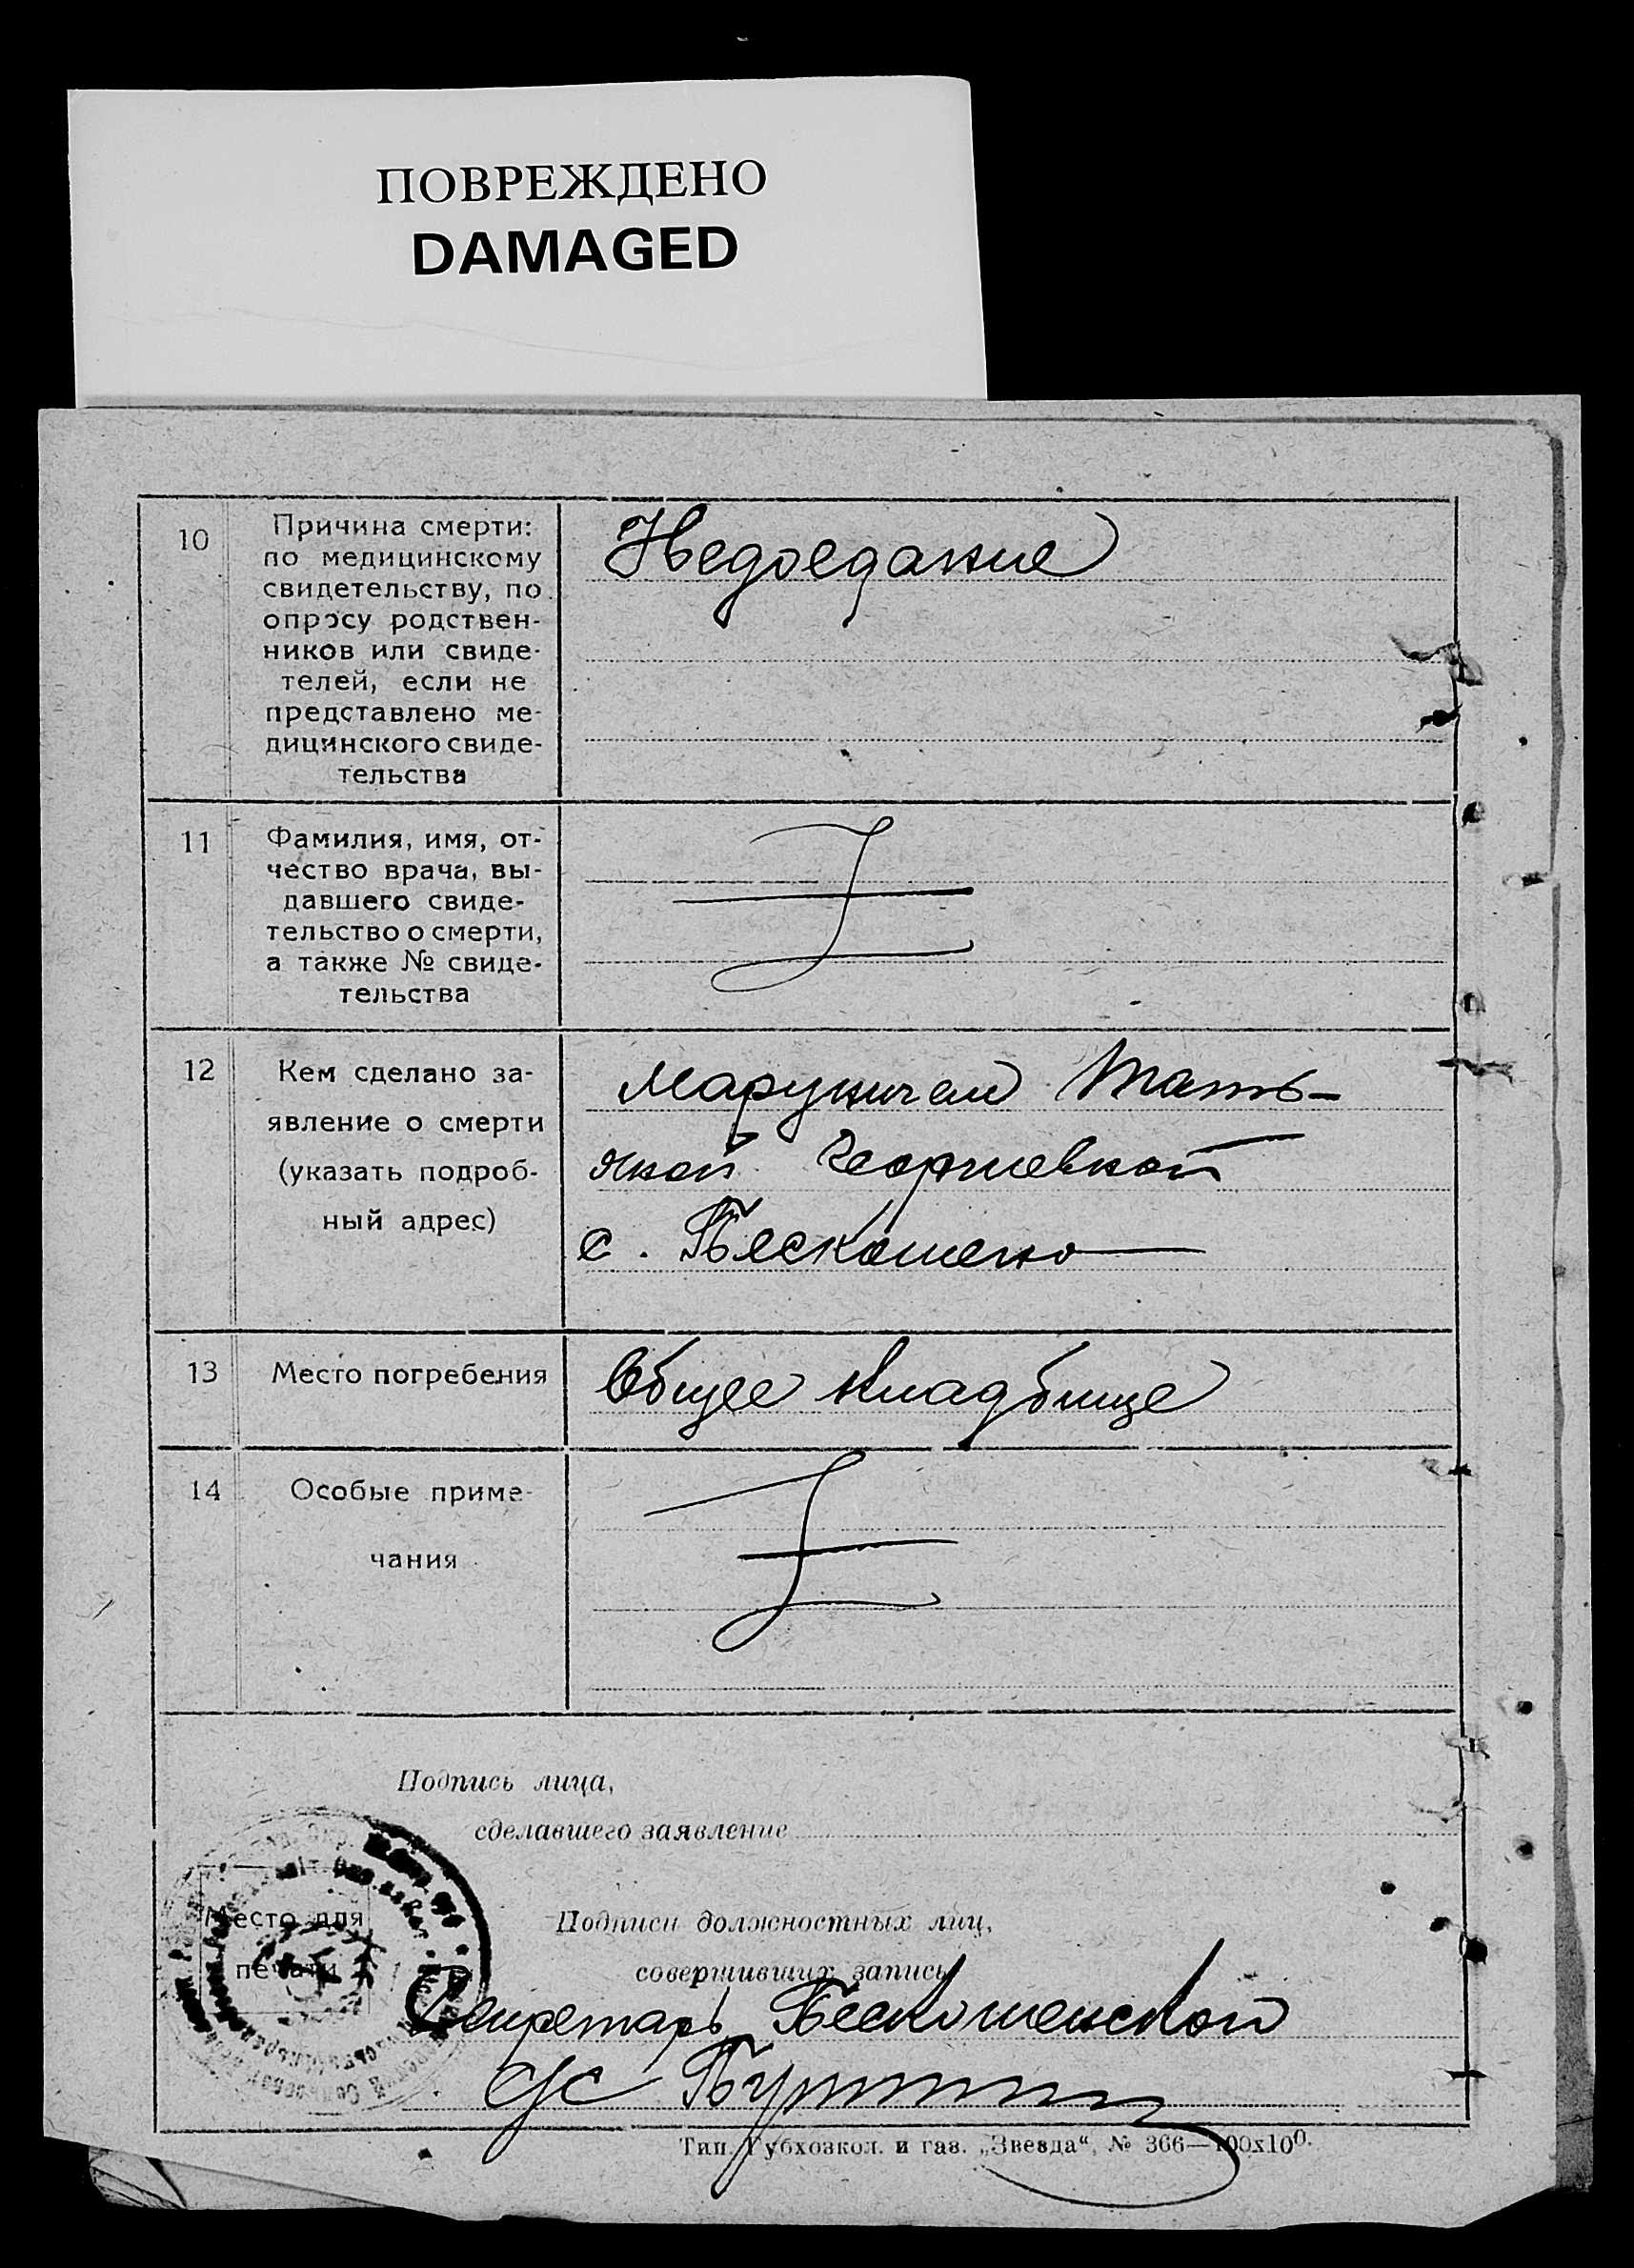 ПОВРЕЖДЕНО
DAMAGED
10
Причина смерти:
по медицинскому
свидетельству, по
опросу родствен-
ников или свиде-
телей, если не
представлено ме-
дицинского свиде-
тельства
Недоедание
11
Фамилия, имя, от-
чество врача, вы-
давшего свиде-
тельство о смерти,
а также № свиде-
тельства
12
Кем сделано за-
явление о смерти
(указать подроб-
ный адрес)
Маруничем Тать-
яной Георгиевной
с. Бескошено
13
Место погребения
Общее кладбище
14
Особые приме-
чания
Подпись лица,
сделавшего заявление
Место для
печати
Подписи должностных лиц,
совершивших запись
Секретарь Бескошенской
с/с
Тип. Губхозкол. и газ. „Звезда“, № 366—100х100.